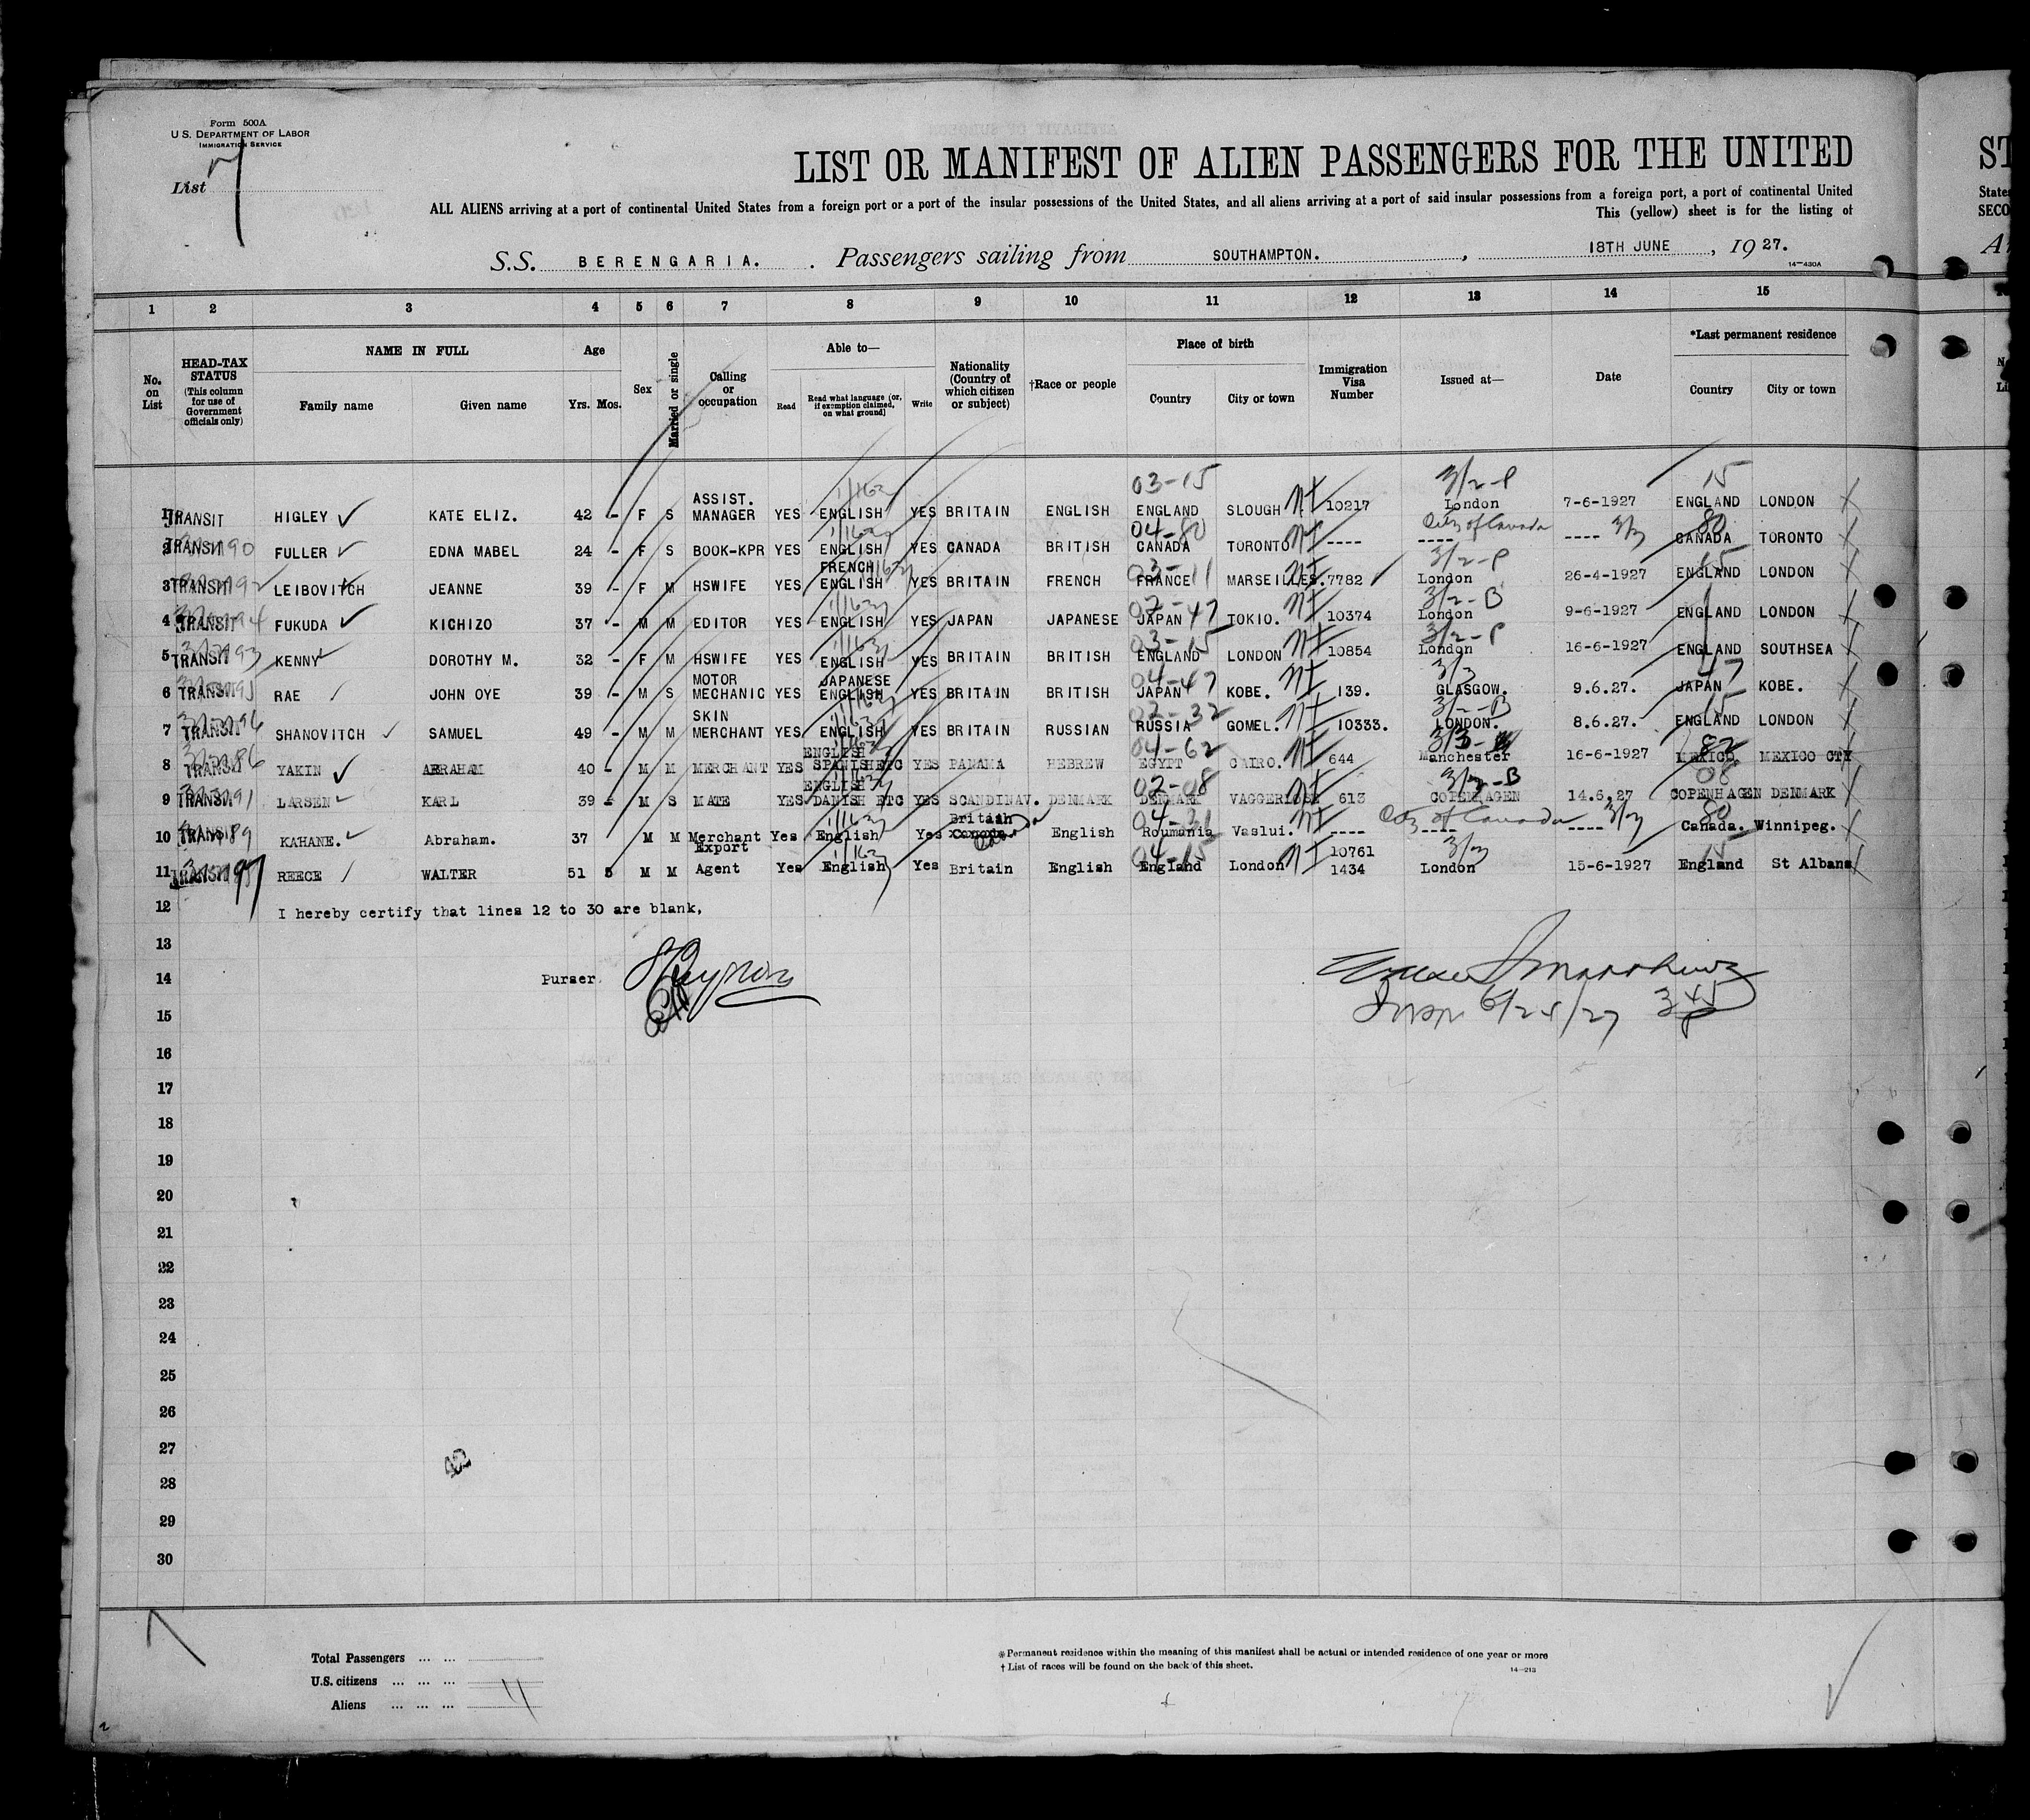 Form 500A
U.S. DEPARTMENT OF LABOR
IMMIGRATION SERVICE
List 7
LIST OR MANIFEST OF ALIEN PASSENGERS FOR THE UNITED ST
ALL ALIENS arriving at a port of continental United States from a foreign port or a port of the insular possessions of the United States, and all aliens arriving at a port of said insular possessions from a foreign port, a port of continental United States
This (yellow) sheet is for the listing of SECO
S.S. BERENGARIA. Passengers sailing from SOUTHAMPTON. , 18TH JUNE , 1927.
14-430A
1 2 3 4 5 6 7 8 9 10 11 12 13 14 15
No. on List
HEAD-TAX STATUS (This column for use of Government officials only)
NAME IN FULL
Family name Given name
Age
Yrs. Mos.
Sex
Married or single
Calling or occupation
Able to—
Read Read what language (or, if exemption claimed, on what ground) Write
Nationality (Country of which citizen or subject)
†Race or people
Place of birth
Country City or town
Immigration Visa Number
Issued at—
Date
*Last permanent residence
Country City or town
03-15 3/2-P 15
1 TRANSIT HIGLEY KATE ELIZ. 42 - F S ASSIST. MANAGER YES ENGLISH YES BRITAIN ENGLISH ENGLAND SLOUGH 10217 London 7-6-1927 ENGLAND LONDON
04-80 80
2 TRANSIT FULLER EDNA MABEL 24 - F S BOOK-KPR YES ENGLISH YES CANADA BRITISH CANADA TORONTO ---- ---- ---- 3/3 CANADA TORONTO
03-11 3/2-P 15
3 TRANSIT LEIBOVITCH JEANNE 39 - F M HSWIFE YES FRENCH ENGLISH YES BRITAIN FRENCH FRANCE MARSEILLES. 7782 London 26-4-1927 ENGLAND LONDON
02-47 3/2-B
4 TRANSIT FUKUDA KICHIZO 37 - M M EDITOR YES ENGLISH YES JAPAN JAPANESE JAPAN TOKIO. 10374 London 9-6-1927 ENGLAND LONDON
03-15 3/2-P
5 TRANSIT KENNY DOROTHY M. 32 - F M HSWIFE YES ENGLISH YES BRITAIN BRITISH ENGLAND LONDON 10854 London 16-6-1927 ENGLAND SOUTHSEA
04-47 3/3 47
6 TRANSIT RAE JOHN OYE 39 - M S MOTOR MECHANIC YES JAPANESE ENGLISH YES BRITAIN BRITISH JAPAN KOBE. 139. GLASGOW. 9.6.27. JAPAN KOBE.
02-32 3/2-B 15
7 TRANSIT SHANOVITCH SAMUEL 49 - M M SKIN MERCHANT YES ENGLISH YES BRITAIN RUSSIAN RUSSIA GOMEL. 10333. LONDON. 8.6.27. ENGLAND LONDON
04-62 82
8 TRANSIT YAKIN ABRAHAM 40 - M M MERCHANT YES ENGLISH SPANISH ETC YES PANAMA HEBREW EGYPT CAIRO. 644 Manchester 16-6-1927 MEXICO MEXICO CTY
02-08 08
9 TRANSIT LARSEN KARL 39 - M S MATE YES ENGLISH DANISH ETC YES SCANDINAV. DENMARK DENMARK VAGGERLOSE 613 COPENHAGEN 14.6.27 COPENHAGEN DENMARK
04-31 80
10 TRANSIT KAHANE. Abraham. 37 M M Merchant Yes English Yes British English Roumania Vaslui. ---- ---- ---- Canada. Winnipeg.
04-15 15
11 TRANSIT REECE WALTER 51 5 M M Export Agent Yes English Yes Britain English England London 10761 1434 London 15-6-1927 England St Albans
12 I hereby certify that lines 12 to 30 are blank,
13
14 Purser.
15
16
17
18
19
20
21
22
23
24
25
26
27
28
29
30
Total Passengers ... ...
U.S. citizens ... ... ...
Aliens ... ... ... 11
*Permanent residence within the meaning of this manifest shall be actual or intended residence of one year or more
† List of races will be found on the back of this sheet.
14-213